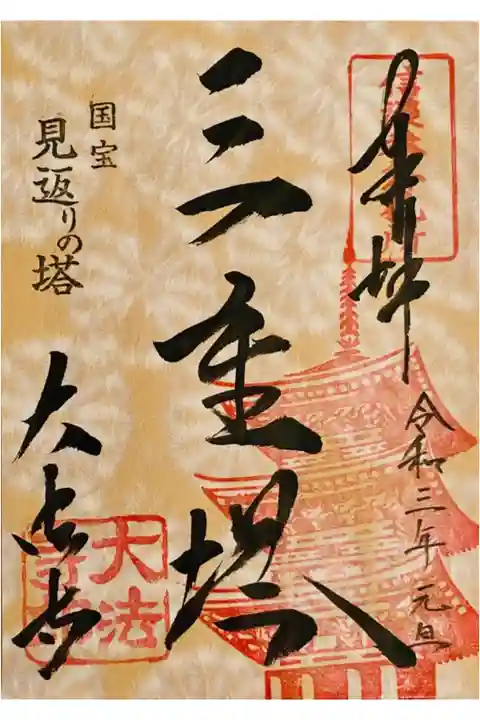 奉拝
令和三年 元旦
三重塔
国宝
見返りの塔
大法寺
大法